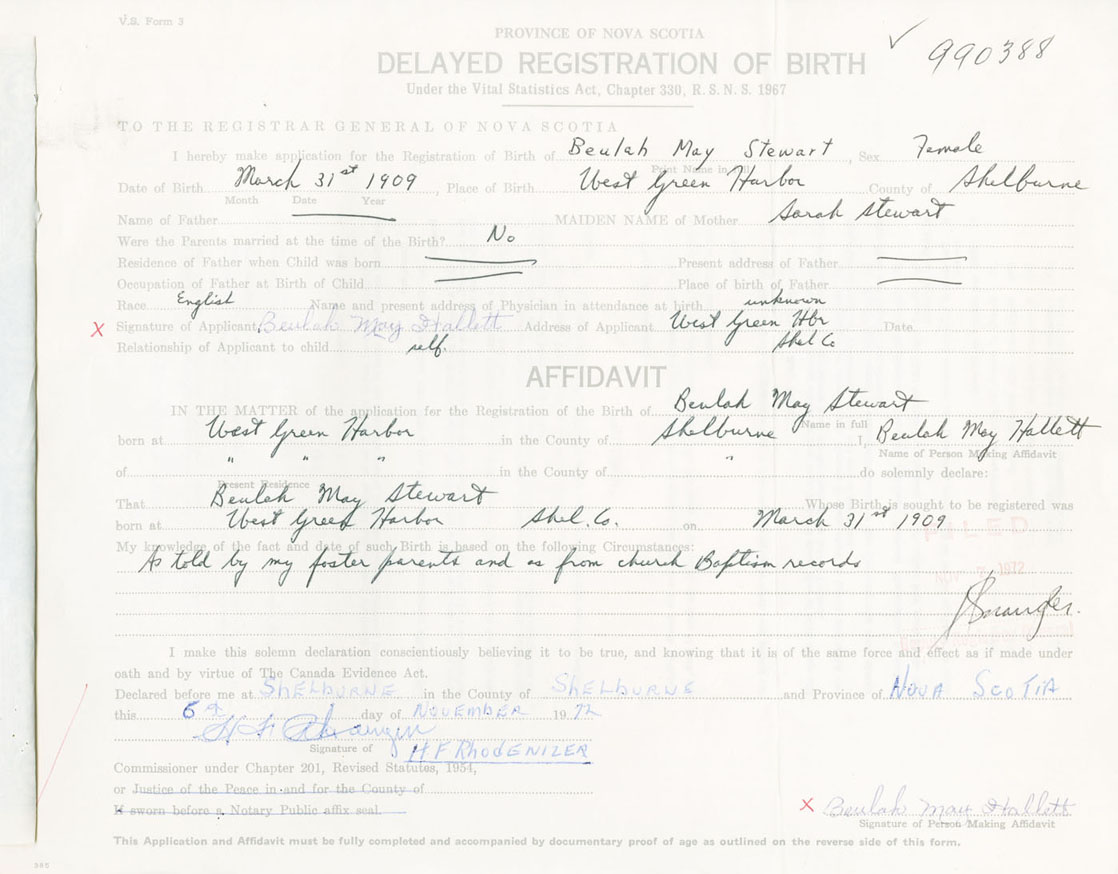 V.S. Form 3
PROVINCE OF NOVA SCOTIA
990388
DELAYED REGISTRATION OF BIRTH
Under the Vital Statistics Act, Chapter 330, R. S. N. S. 1967
TO THE REGISTRAR GENERAL OF NOVA SCOTIA
I hereby make application for the Registration of Birth of Beulah May Stewart, Sex Female
Print Name in full
Date of Birth March 31st 1909, Place of Birth West Green Harbor County of Shelburne
Month Date Year
Name of Father MAIDEN NAME of Mother Sarah Stewart
Were the Parents married at the time of the Birth? No
Residence of Father when Child was born Present address of Father
Occupation of Father at Birth of Child Place of birth of Father
Race English Name and present address of Physician in attendance at birth unknown
X Signature of Applicant Beulah May Hallett Address of Applicant West Green Hbr Date
Relationship of Applicant to child self. Shel Co
AFFIDAVIT
IN THE MATTER of the application fer the Registration of the Birth of Beulah May Stewart
Name in full
born at West Green Harbor in the County of Shelburne I, Beulah May Hallett
Name of Person Making Affidavit
of " " " in the County of " do solemnly declare:
Present Residence
That Beulah May Stewart Whose Birth is sought to be registered was
born at West Green Harbor Shel. Co. on March 31st 1909
FILED
My knowledge of the fact and date of such Birth is based on the following Circumstances:
As told by my foster parents and as from church Baptism records
NOV 7 1972
I make this solemn declaration conscientiously believing it to be true, and knowing that it is of the same force and effect as if made under
oath and by virtue of The Canada Evidence Act.
Declared before me at SHELBURNE in the County of SHELBURNE and Province of NOVA SCOTIA
this 6th day of NOVEMBER 1972
Signature of H.F RHODENIZER
Commissioner under Chapter 201, Revised Statutes, 1954,
or Justice of the Peace in and for the County of
If sworn before a Notary Public affix seal.
X Beulah May Hallett
Signature of Person Making Affidavit
This Application and Affidavit must be fully completed and accompanied by documentary proof of age as outlined on the reverse side of this form.